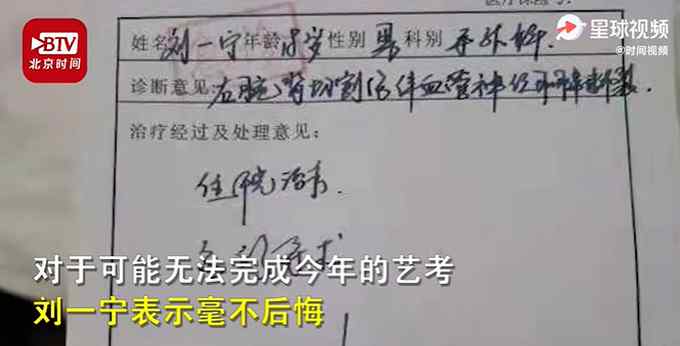 医疗保险号:
BTV
北京时间
星球视频
@时间视频
姓名 刘一宁 年龄 18岁 性别 男 科别 手外科.
诊断意见 右腕 切割伤伴血管神经
治疗经过及处理意见:
住院治疗.
对于可能无法完成今年的艺考
刘一宁表示毫不后悔